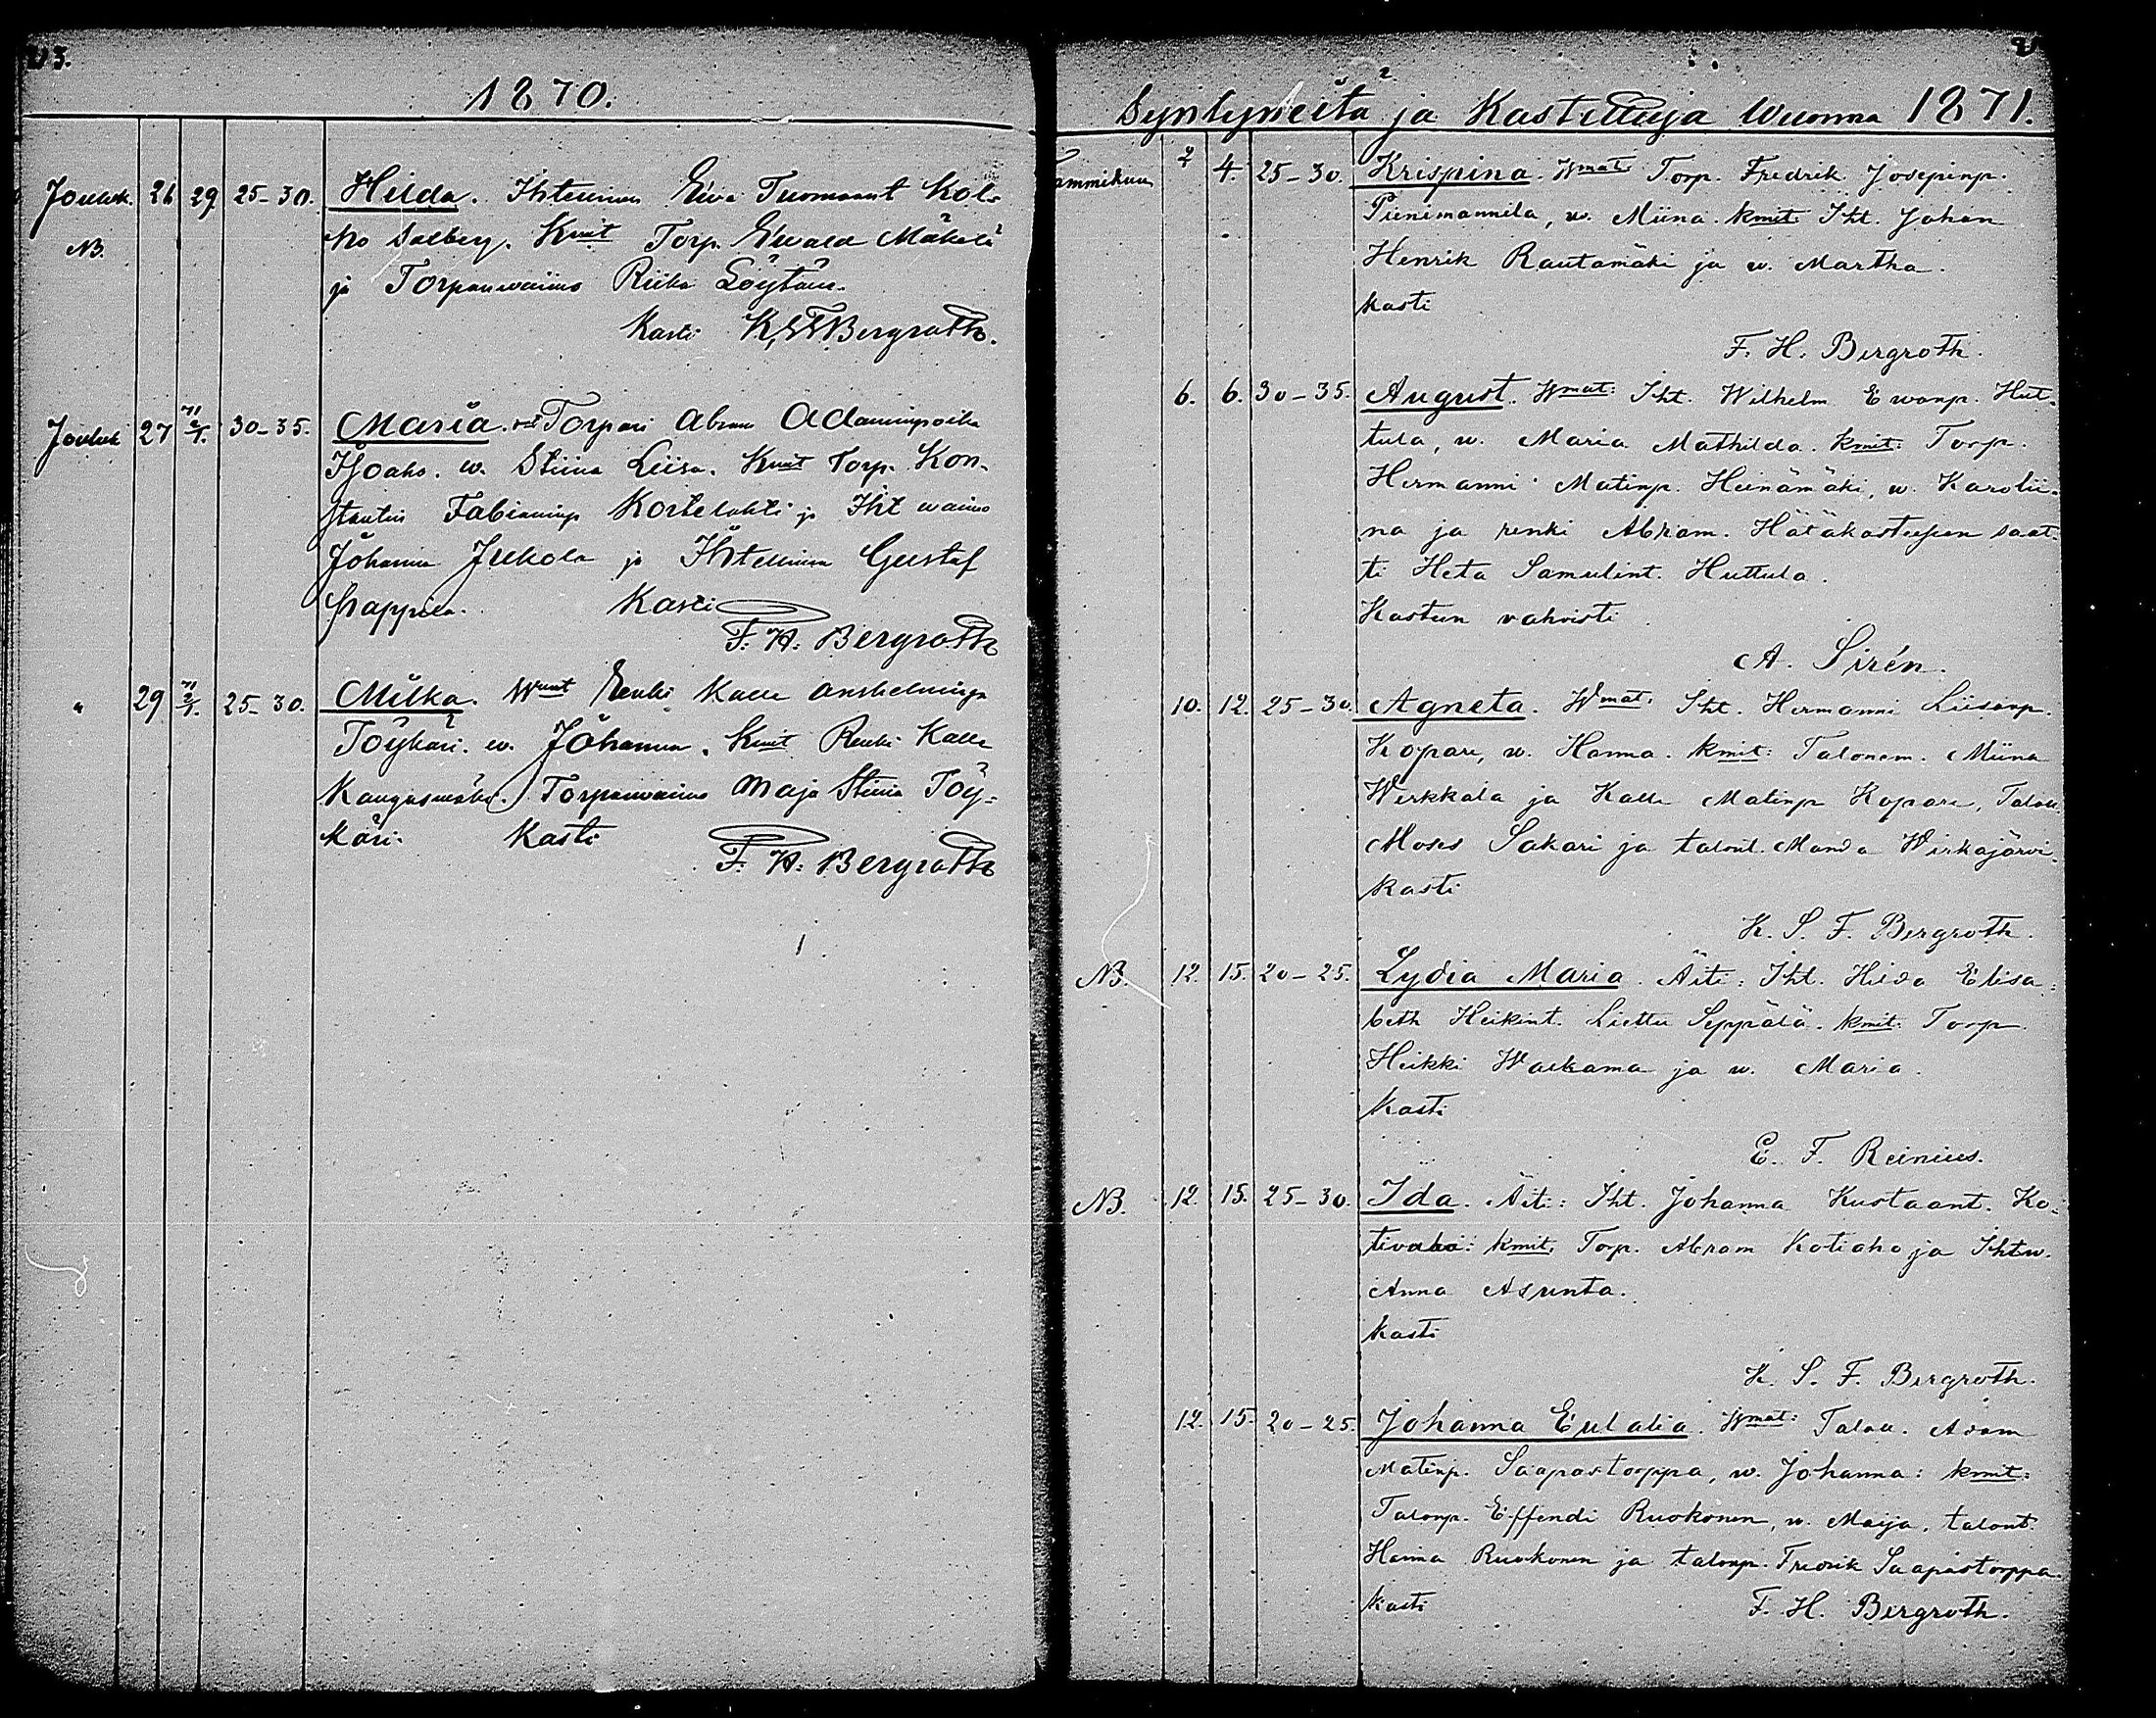 1870.
Jouluk. 26 29 25-30. Hilda. Ihtellinen Eva Tuomaant Kol-
NB. ho Salberg. Kmit Torp. Ewald Mäkelä
ja Torpanwaimo Riika Löytän.
Kasti K,S,F,Bergroth.
Jouluk 27 71 2/1. 30-35. Maria. Torpari Abram Adaminpoika
Isoaho. w. Stiina Liisa. Kmit Torp. Kon-
stantin Fabianinp Kortelahti ja Iht waimo
Johanna Jukola ja Ihtellinen Gustaf
Kasti
F. H. Bergroth
" 29 71 2/1. 25-30. Milka. Wmat Renki Kalle Anshelminp
Töykäri. w. Johanna. Kmit Renki Kalle
Kangasmäki. Torpanwaimo Maja Stiina Töy-
käri. Kasti
F. H. Bergroth
Syntyneitä ja Kastettuja Wuonna 1871.
Tammikuu 2 4 25-30. Krispina. Wmat: Torp. Fredrik Josepinp.
Pienimannila, w. Miina. kmit: Iht. Johan
Henrik Rautamäki ja w. Martha.
kasti
F. H. Bergroth.
6. 6. 30-35. August. Wmat: Iht. Wilhelm Ewanp. Hut-
tula, w. Maria Mathilda. kmit: Torp.
Hermanni Matinp. Heinämäki, w. Karolii-
na ja renki Abram. Hätäkasteesen saat-
ti Heta Samulint. Huttula.
Kasteen vahvisti
A. Sirén.
10. 12. 25-30. Agneta. Wmat: Iht. Hermanni Liisanp.
Kopare, w. Hanna. kmit: Talonem. Miina
Werkkala ja Kalle Matinp Kopare, Taloll.
Moses Sakari ja talont. Manda Wirkajärvi.
kasti
K. S. F. Bergroth.
NB. 12. 15. 20-25. Lydia Maria. Äiti: Iht. Hilda Elisa-
beth Heikint. Liettu Seppälä. kmit: Torp.
Heikki Waekama ja w. Maria.
kasti
E. F. Reinius.
NB. 12. 15. 25-30. Ida. Äiti: Iht. Johanna Kustaant. Ko-
tivaho: kmit: Torp. Abram Kotiaho ja Ihtw.
Anna Asunta.
kasti
K. S. F. Bergroth.
12. 15. 20-25. Johanna Eulalia. Wmat: Taloll. Adam
Matinp. Saapastorppa, w. Johanna: kmit:
Talonp. Effendi Ruokonen, w. Maija, talont.
Hanna Ruokonen ja talonp. Fredrik Saapastorppa.
kasti F. H. Bergroth.